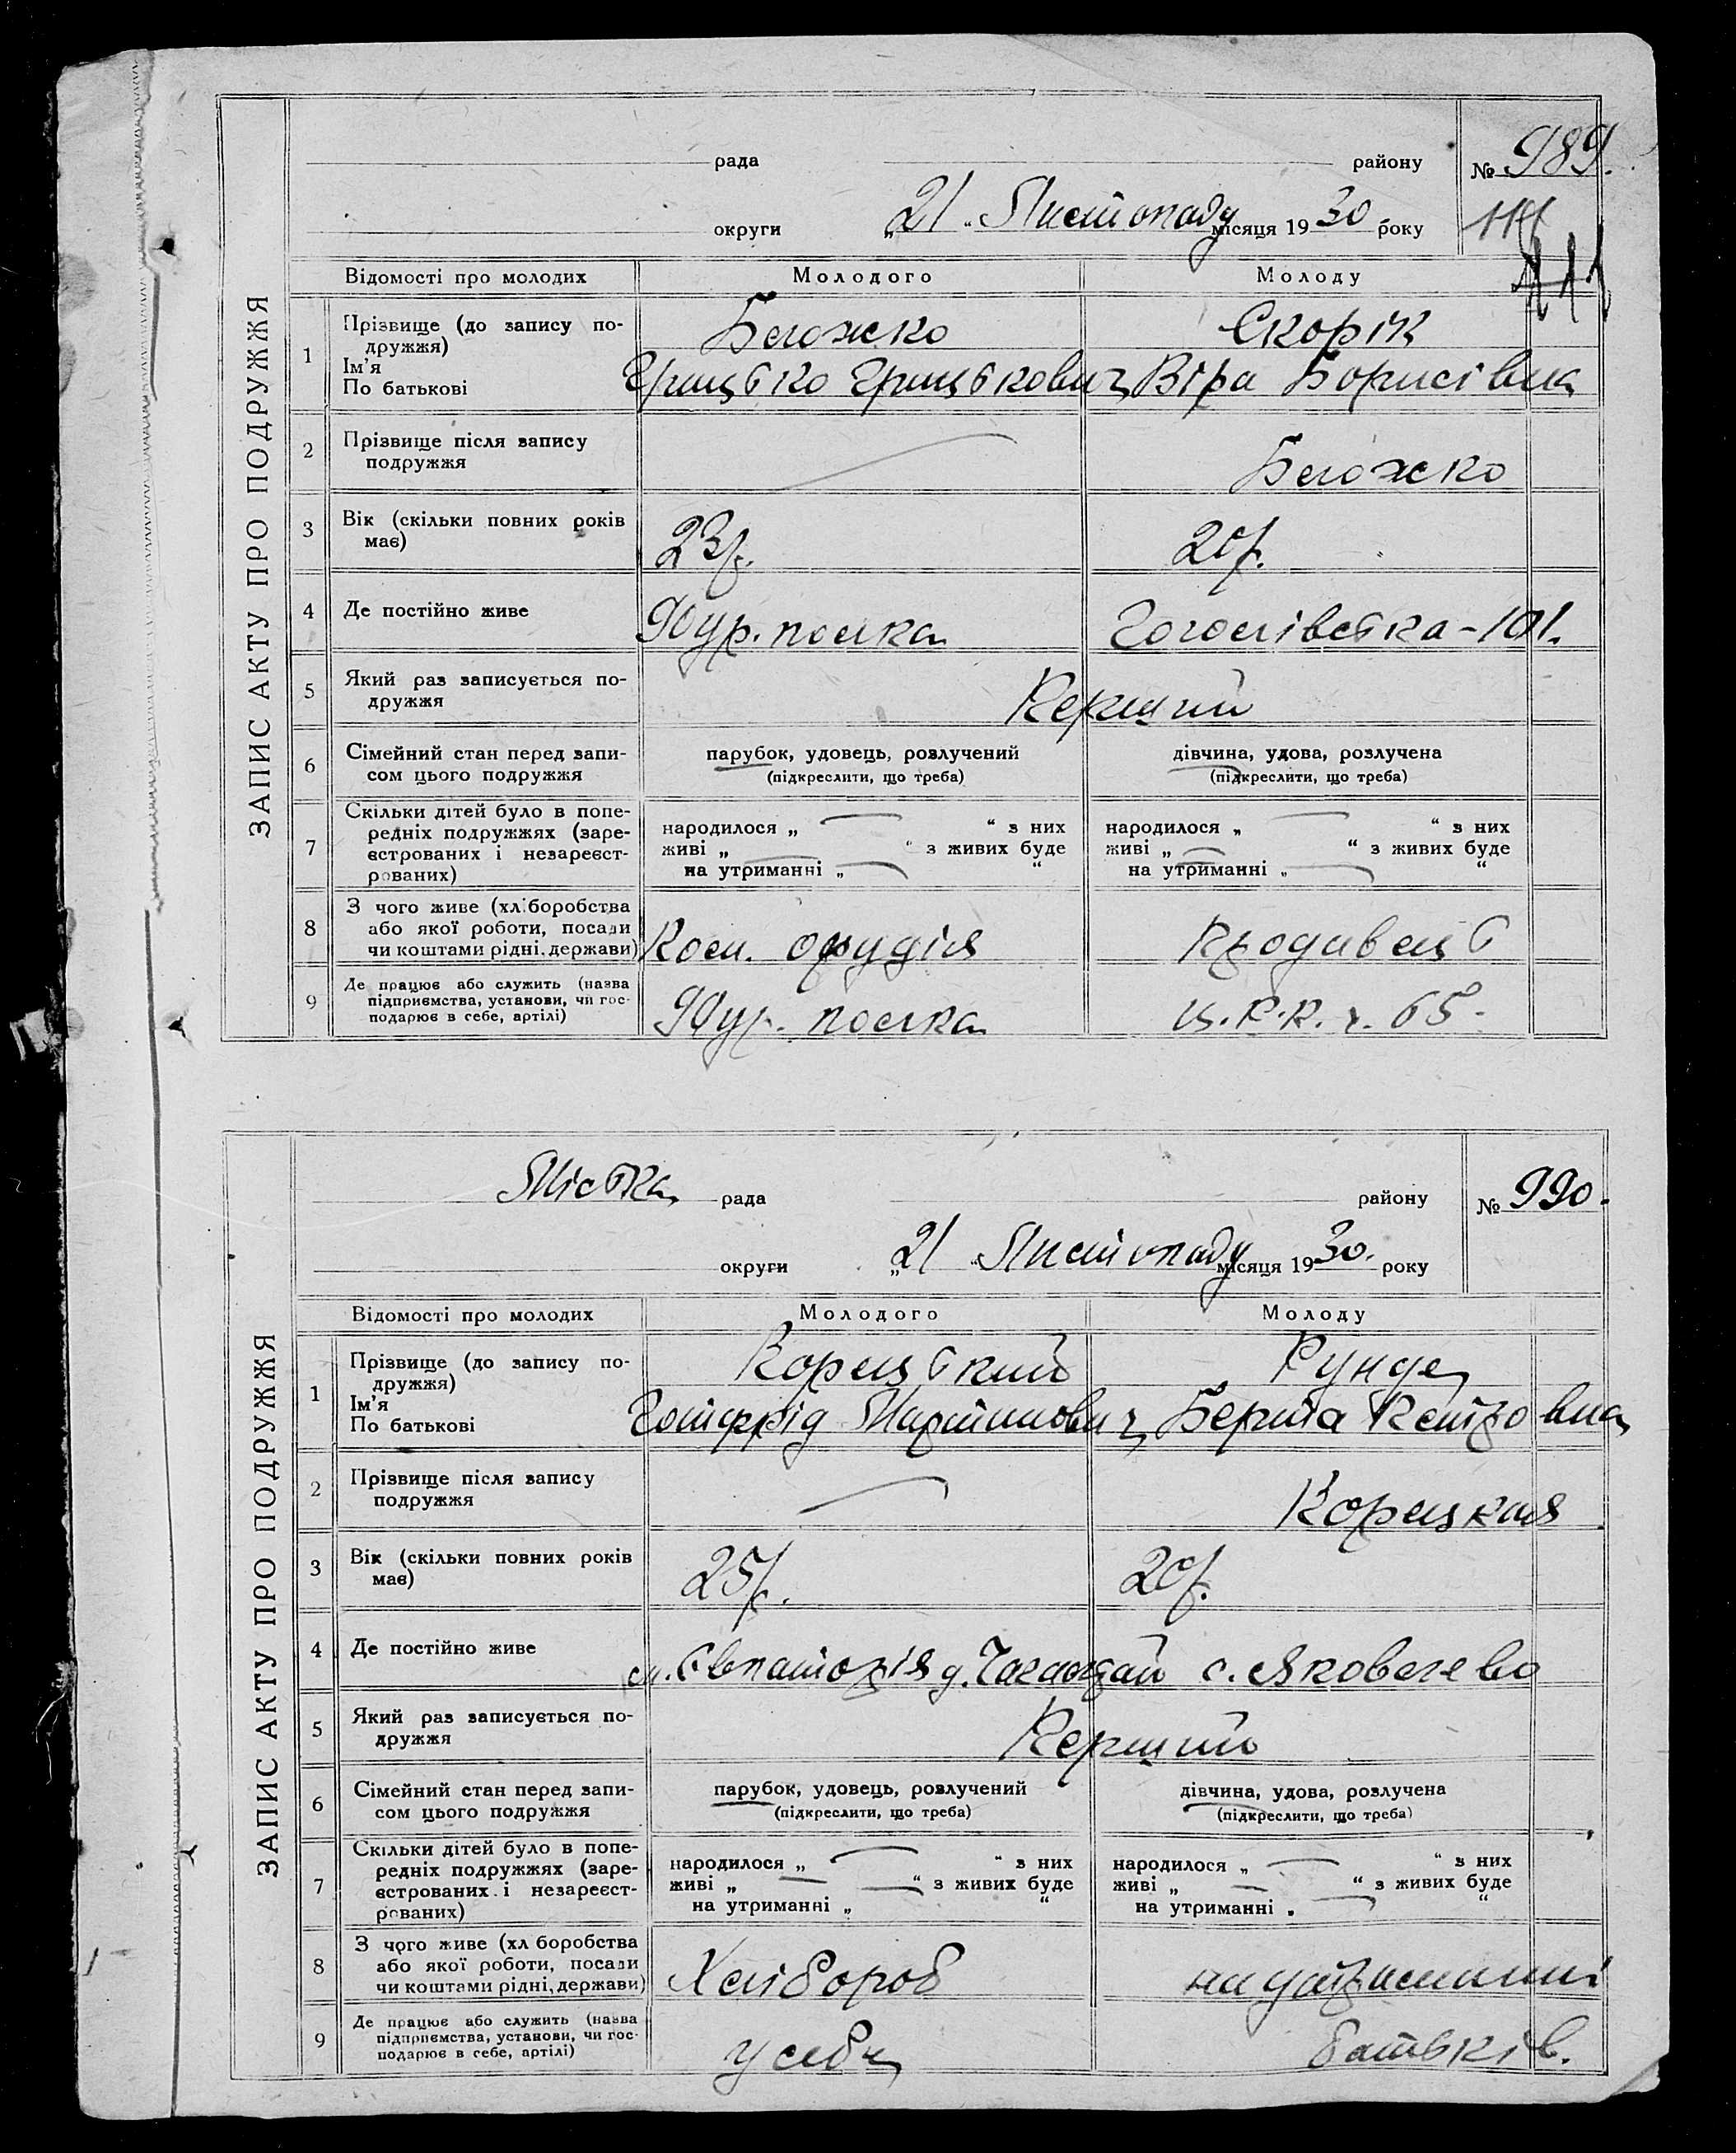 ЗАПИС АКТУ ПРО ПОДРУЖЖЯ
рада району № 989.
округи „21“ Листопаду місяця 1930 року
111
Відомості про молодих Молодого Молоду
1 Прізвище (до запису по-
дружжя) Скорік
Ім’я
По батькові Грицько Грицькович Віра Борисівна
2 Прізвище після запису
подружжя
3 Вік (скільки повних років
має) 23р. 20р.
4 Де постійно живе Голосіївська-101.
5 Який раз записується по-
дружжя Перший
6 Сімейний стан перед запи-
сом цього подружжя
парубок, удовець, розлучений дівчина, удова, розлучена
(підкреслити, що треба) (підкреслити, що треба)
7 Скільки дітей було в попе-
редніх подружжях (заре-
єстрованих і незареєст-
рованих)
народилося „ “ з них народилося „ “ з них
живі „ “ з живих буде живі „ “ з живих буде
на утриманні „ “ на утриманні „ “
8 З чого живе (хліборобства
або якої роботи, посади
чи коштами рідні, держави) Продавець
9 Де працює або служить (назва
підприємства, установи, чи гос-
подарює в себе, артілі) Ц.Р.К. 65
ЗАПИС АКТУ ПРО ПОДРУЖЖЯ
Міська рада району № 990.
округи „21“ Листопаду місяця 1930. року
Відомості про молодих Молодого Молоду
1 Прізвище (до запису по-
дружжя) Корецький Рунде
Ім’я
По батькові Готфрід Мартинович Берта Петровна
2 Прізвище після запису
подружжя Корецкая
3 Вік (скільки повних років
має) 25р. 20р.
4 Де постійно живе м. Євпаторія д. с. Яковлево
5 Який раз записується по-
дружжя Перший
6 Сімейний стан перед запи-
сом цього подружжя
парубок, удовець, розлучений дівчина, удова, розлучена
(підкреслити, що треба) (підкреслити, що треба)
7 Скільки дітей було в попе-
редніх подружжях (заре-
єстрованих і незареєст-
рованих)
народилося „ “ з них народилося „ “ з них
живі „ “ з живих буде живі „ “ з живих буде
на утриманні „ “ на утриманні „ “
8 З чого живе (хліборобства
або якої роботи, посади
чи коштами рідні, держави) Хлібороб на утриманні
9 Де працює або служить (назва
підприємства, установи, чи гос-
подарює в себе, артілі) у себе батьків.